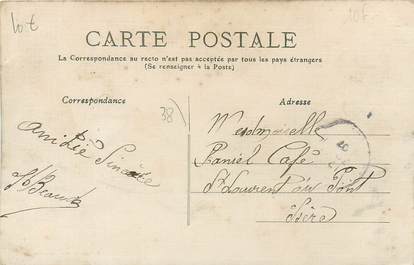 10 €
10F
CARTE POSTALE
La Correspondance au recto n'est pas acceptée par tous les pays étrangers
(Se renseigner à la Poste)
Correspondance
Adresse
38)
Amitié Sincère
Mademoiselle
Daniel Café
St Laurent du Pont
Isère